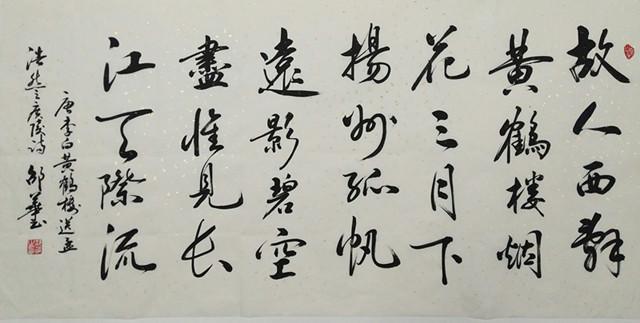 故人西辭
黄鶴楼烟
花三月下
揚州孤帆
遠影碧空
盡惟見长
江天際流
唐李白黄鶴楼送孟
浩然之广陵诗 邵華